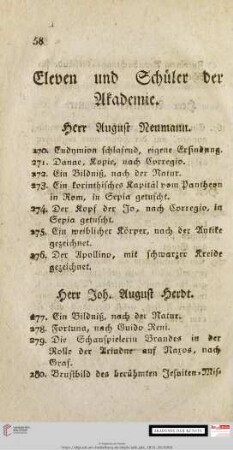 58
Eleven und Schüler der
Akademie.
Herr August Neumann.
270. Endymion schlafend, eigene Erfindung.
271. Danae, Kopie, nach Corregio.
272. Ein Bildniß, nach der Natur.
273. Ein korinthisches Kapitäl vom Pantheon
in Rom, in Sepia getuscht.
274. Der Kopf der Jo, nach Corregio, in
Sepia getuscht.
275. Ein weiblicher Körper, nach der Antike
gezeichnet.
276. Der Apollino, mit schwarzer Kreide
gezeichnet.
Herr Joh. August Herdt.
277. Ein Bildniß, nach der Natur.
278. Fortuna, nach Guido Reni.
279. Die Schauspielerin Brandes in der
Rolle der Ariadne auf Naxos, nach
Graf.
280. Brustbild des berühmten Jesuiten-Mis-